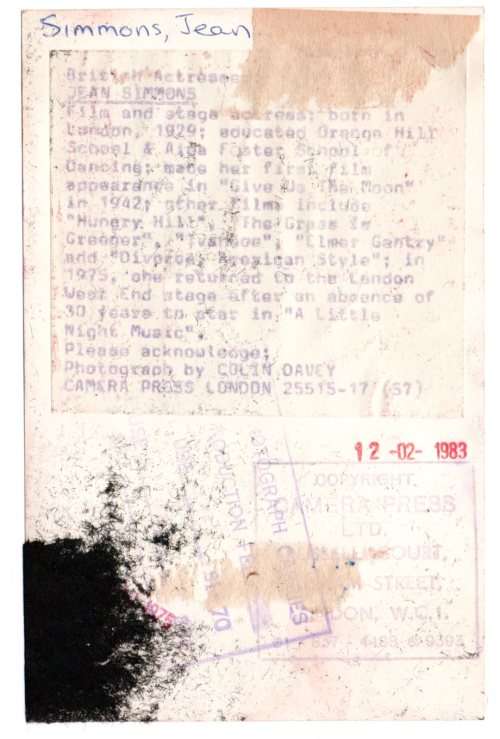 Simmons, Jean
British Actresses
JEAN SIMMONS
Film and stage actress; born in
London, 1929; educated Orange Hill
School & Aida Foster School of
Dancing; made her first film
appearance in "Give Us The Moon"
in 1942; other films include
"Hungry Hill", "The Grass Is
Greener", "Ivanhoe", "Elmer Gantry"
and "Divorce, American Style"; in
1975, she returned to the London
West End stage after an absence of
30 years to star in "A Little
Night Music".
Please acknowledge:
Photograph by COLIN DAVEY
CAMERA PRESS LONDON 25515-17 (57)
12 -02- 1983
COPYRIGHT
CAMERA PRESS
LTD.
COURT,
STREET,
W.C.1.